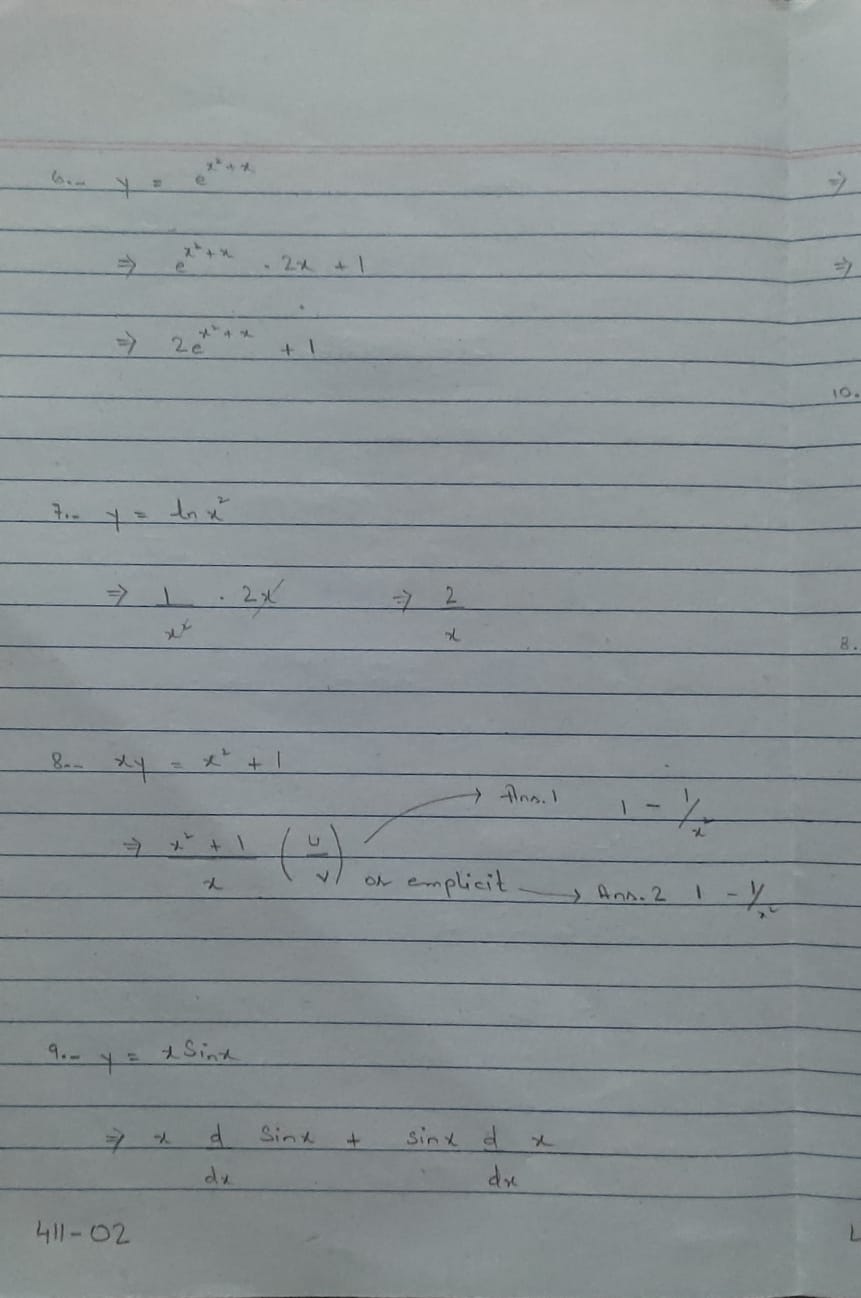 6.. y = e^{x²+x}
⇒ e^{x²+x} . 2x + 1
⇒ 2e^{x²+x} + 1
7.. y = ln x²
⇒ 1/x² . 2x ⇒ 2/x
8.. xy = x² + 1
⇒ (x² + 1)/x (u/v) → Ans.1 1 - 1/x²
or emplicit → Ans.2 1 - 1/x²
9.. y = xSinx
⇒ x d/dx Sinx + sinx d/dx x
411-02
⇒
⇒
10.
8.